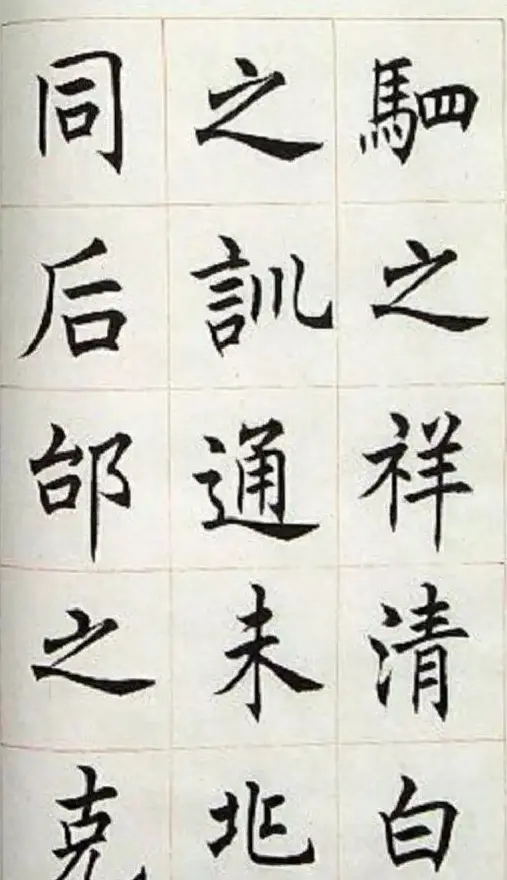 駟之祥清白
之訓通未
同后邰之克